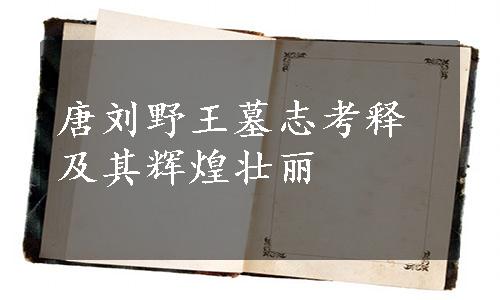 唐刘野王墓志考释
及其辉煌壮丽